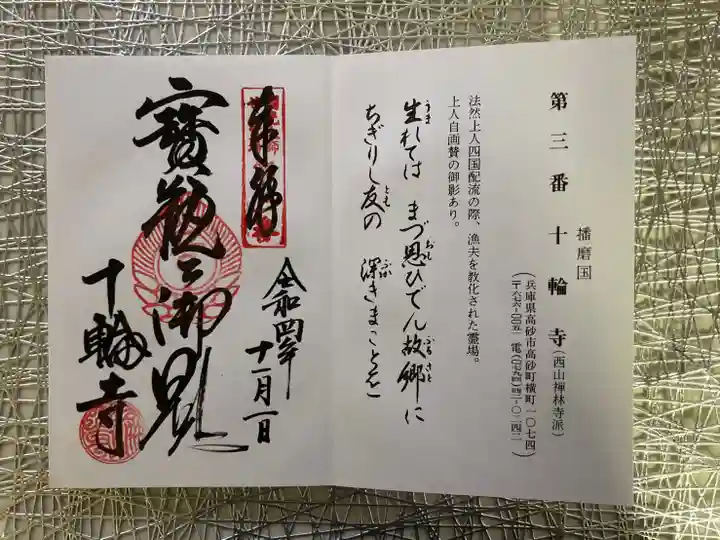 第三番 十輪寺(西山禅林寺派)
播磨国
(兵庫県高砂市高砂町横町一〇七四)
法然上人四国配流の際、漁夫を教化された霊場。
上人自画賛の御影あり。
生れては まづ思ひでん故郷に
ちぎりし友の 深きまことを
奉拝
令和四年
十一月一日
十輪寺